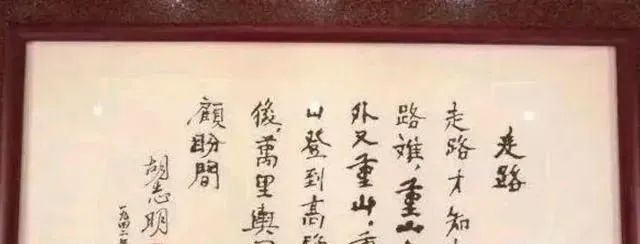 走路
走路才知
路难，重山
外又重山，重
山登到高
後，萬里輿
顧盼間
胡志明
一九四二年